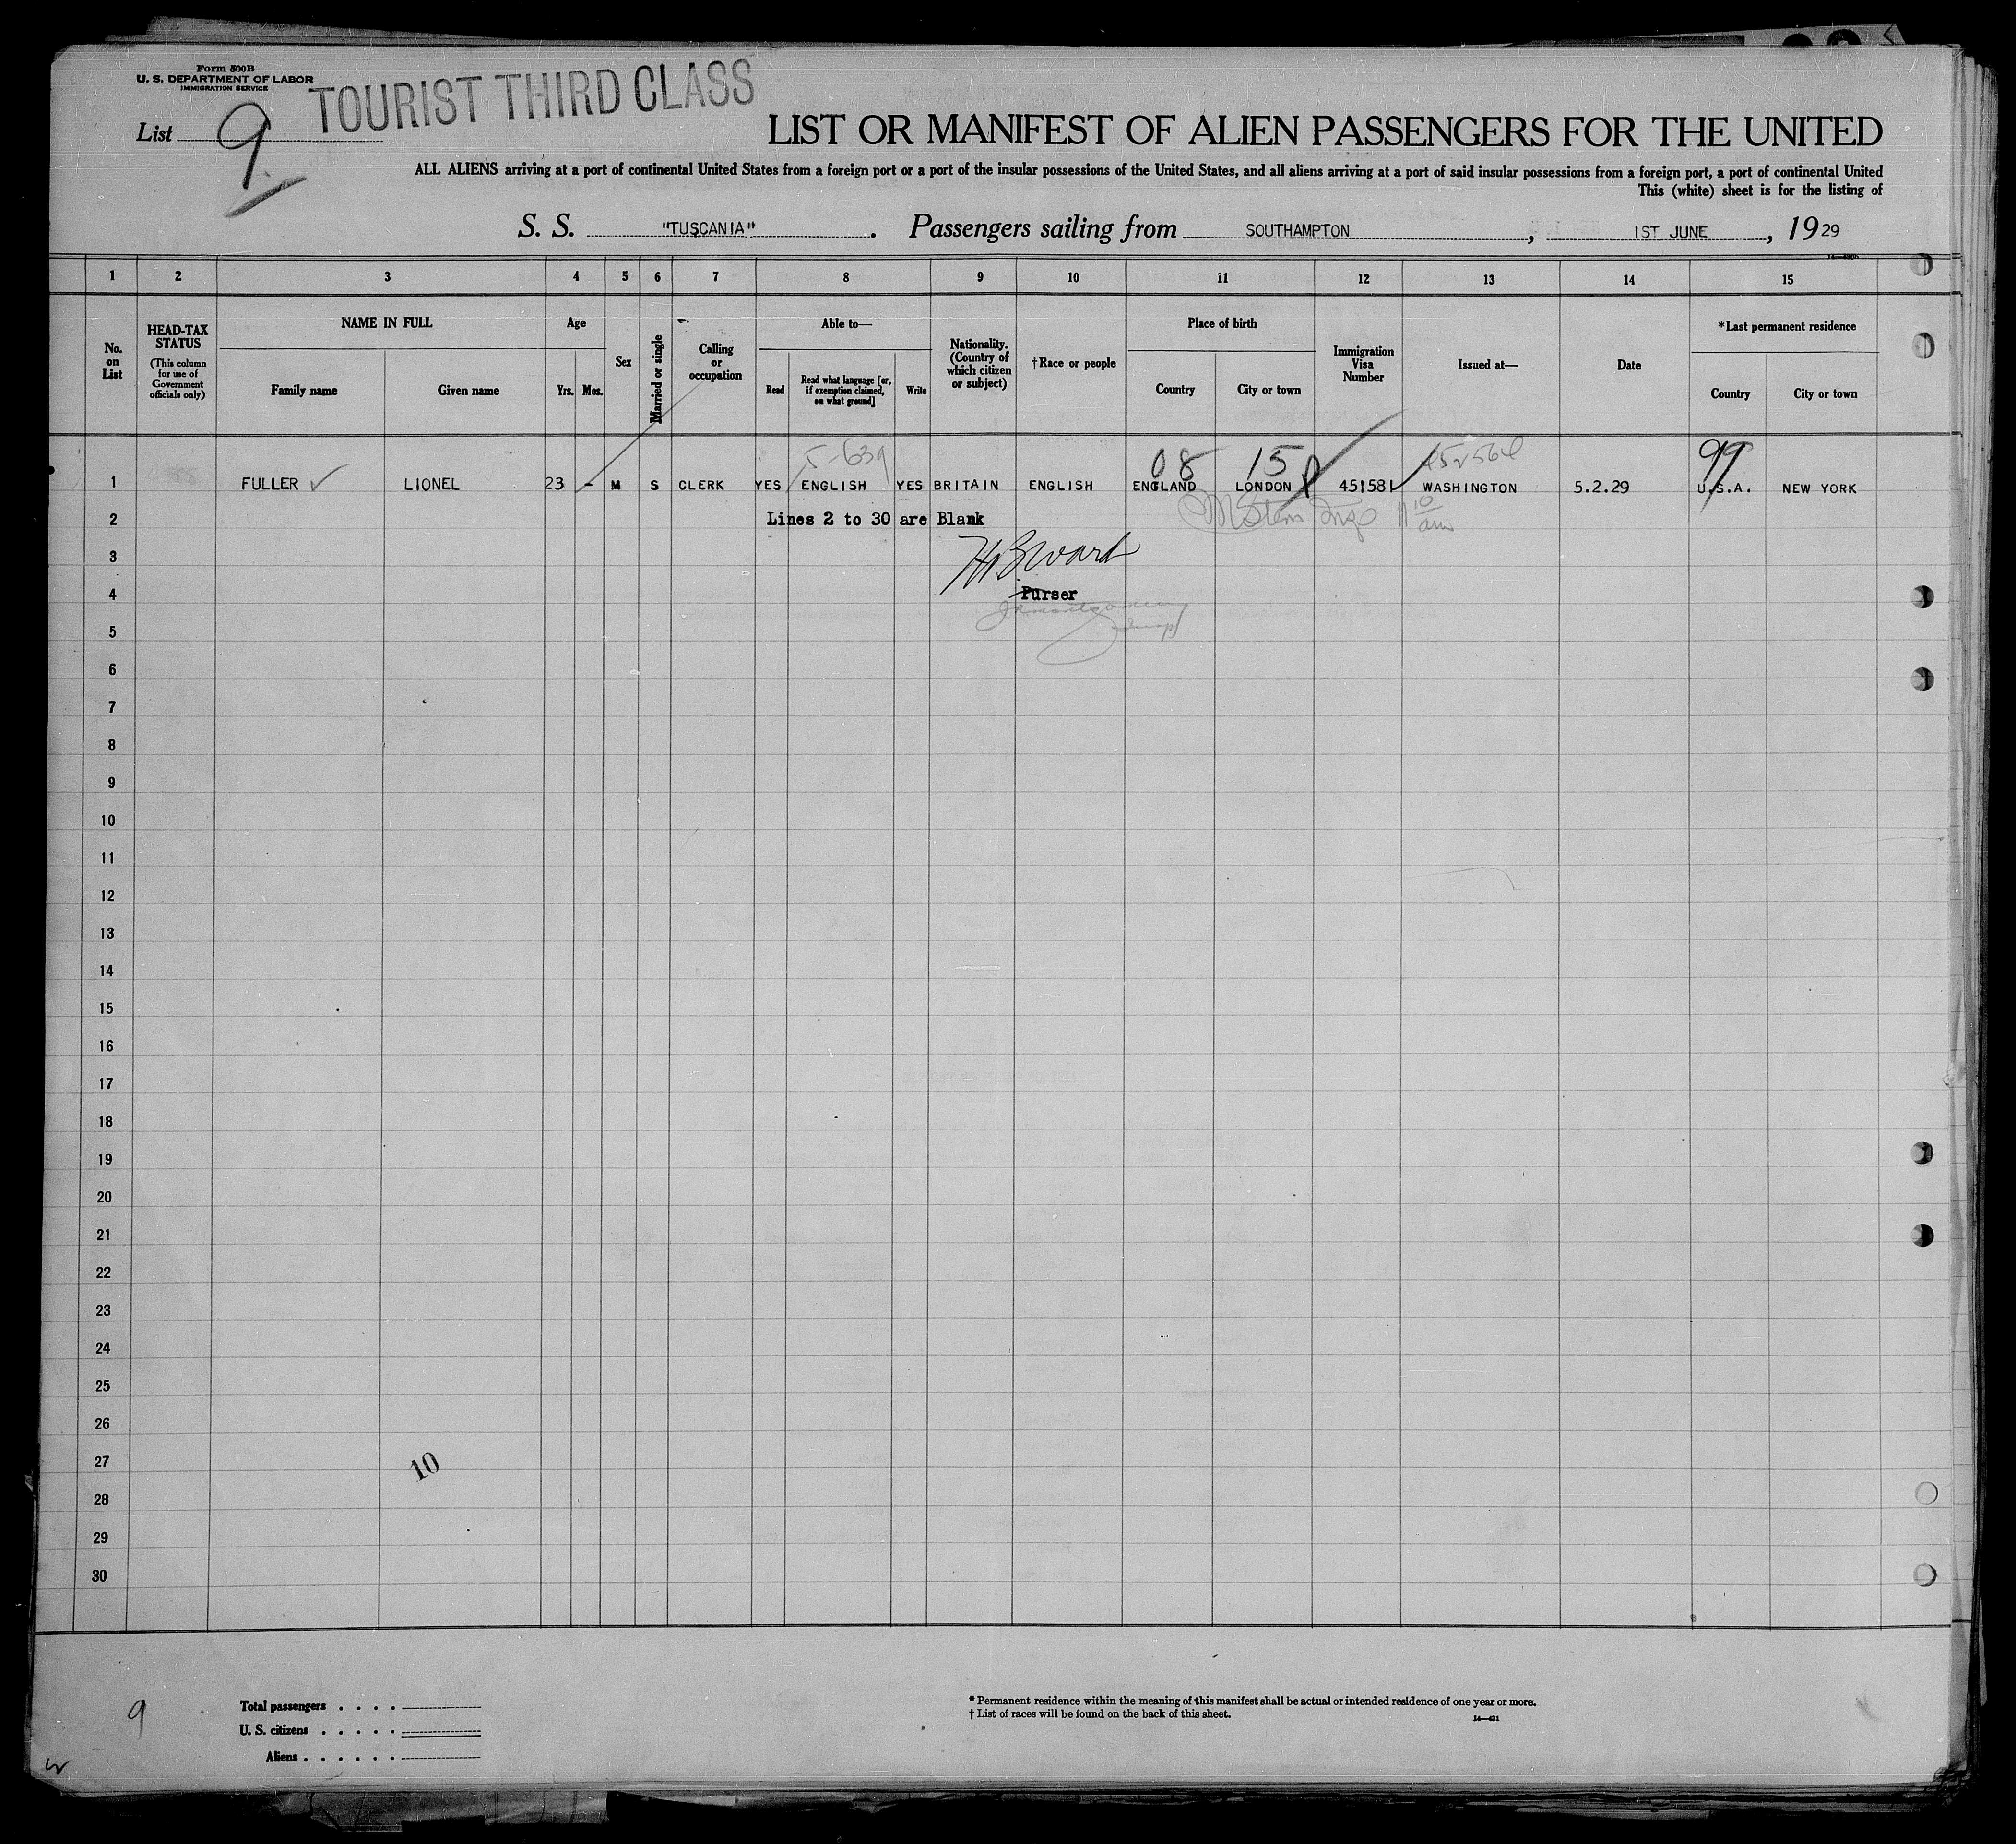 Form 500B
U. S. DEPARTMENT OF LABOR
IMMIGRATION SERVICE
TOURIST THIRD CLASS
List 9
LIST OR MANIFEST OF ALIEN PASSENGERS FOR THE UNITED
ALL ALIENS arriving at a port of continental United States from a foreign port or a port of the insular possessions of the United States, and all aliens arriving at a port of said insular possessions from a foreign port, a port of continental United
This (white) sheet is for the listing of
S. S. "TUSCANIA". Passengers sailing from SOUTHAMPTON, 1ST JUNE, 1929
1 2 3 4 5 6 7 8 9 10 11 12 13 14 15
No. on List
HEAD-TAX STATUS
(This column for use of Government officials only)
NAME IN FULL
Family name
Given name
Age
Yrs.
Mos.
Sex
Married or single
Calling or occupation
Able to—
Read
Read what language [or, if exemption claimed, on what ground]
Write
Nationality. (Country of which citizen or subject)
†Race or people
Place of birth
Country
City or town
Immigration Visa Number
Issued at—
Date
*Last permanent residence
Country
City or town
5-639 08 15 99
1 FULLER ✓ LIONEL 23 - M S CLERK YES ENGLISH YES BRITAIN ENGLISH ENGLAND LONDON 451581 WASHINGTON 5.2.29 U.S.A. NEW YORK
2 Lines 2 to 30 are Blank
3
4 Purser
5
6
7
8
9
10
11
12
13
14
15
16
17
18
19
20
21
22
23
24
25
26
27 10
28
29
30
9
Total passengers . . . .
U. S. citizens . . . . .
Aliens . . . . . .
* Permanent residence within the meaning of this manifest shall be actual or intended residence of one year or more.
† List of races will be found on the back of this sheet.
14—431